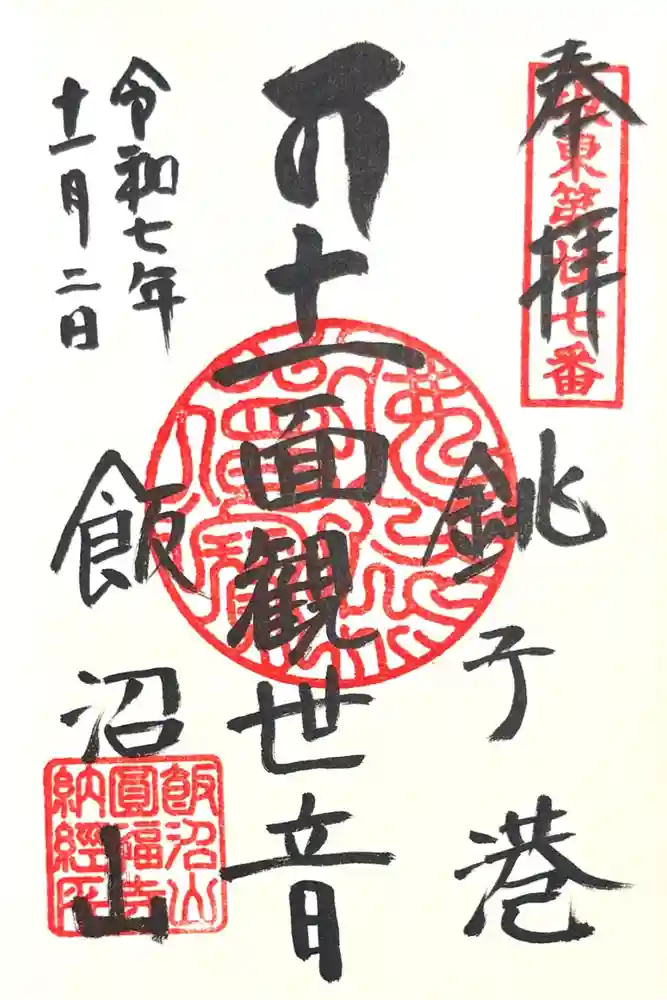 奉拝
坂東第廿七番
銚子港
十一面観世音
飯沼山
令和七年
十一月二日
飯沼山
圓福寺
納経所